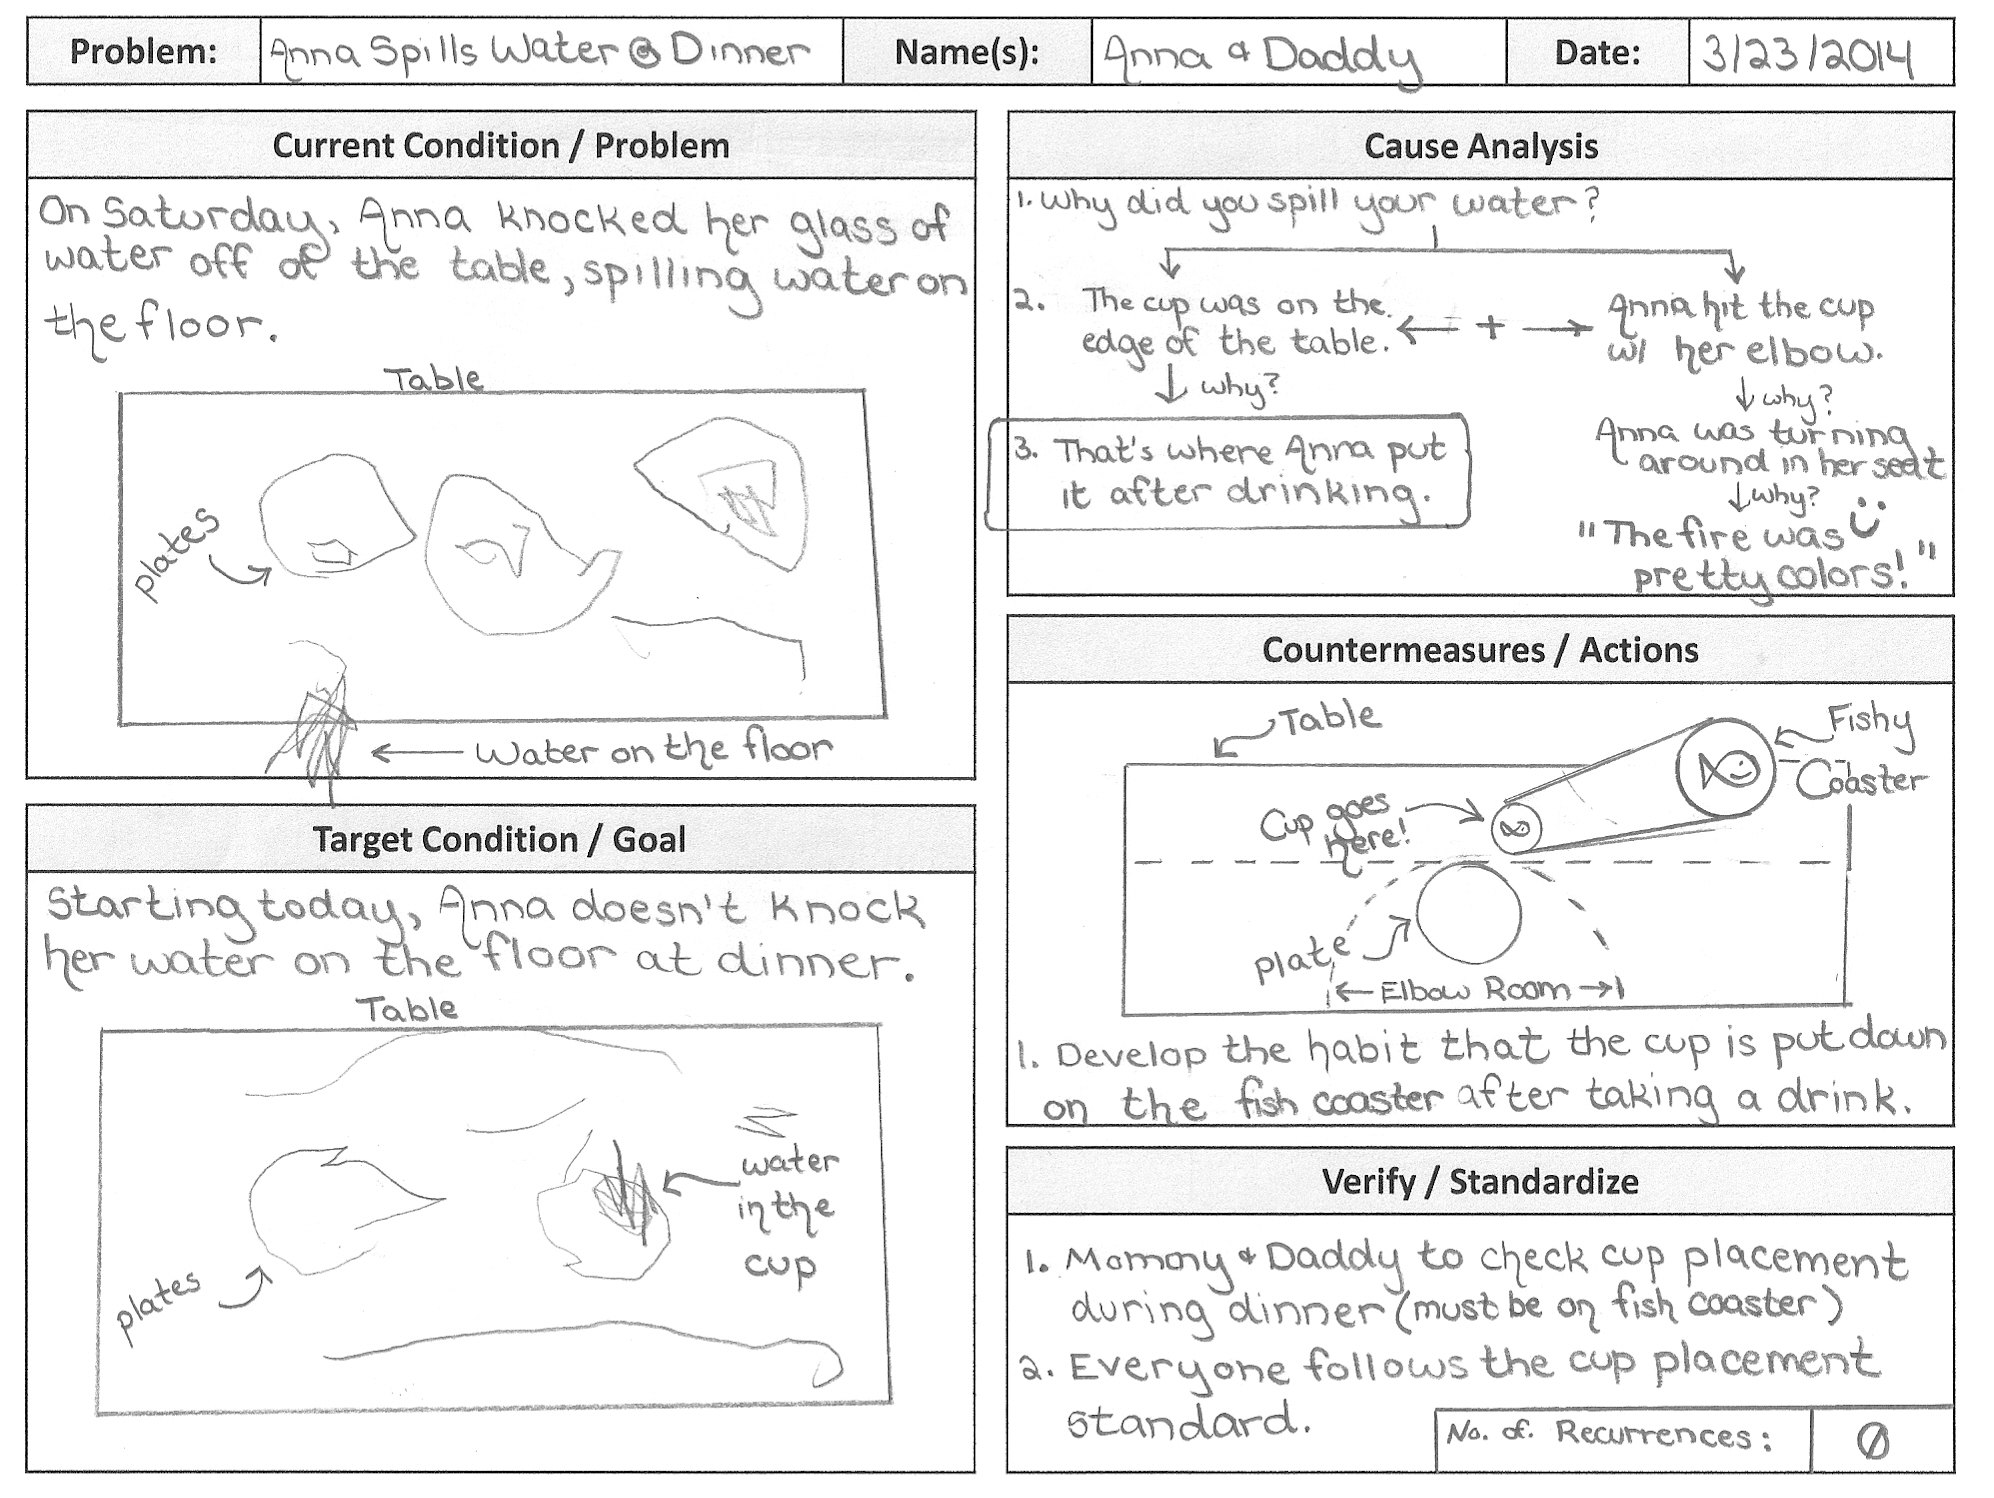 Problem: Anna Spills Water @ Dinner Name(s): Anna & Daddy Date: 3/23/2014
Current Condition / Problem
On Saturday, Anna knocked her glass of
water off of the table, spilling water on
the floor.
Table
plates
Water on the floor
Target Condition / Goal
Starting today, Anna doesn't knock
her water on the floor at dinner.
Table
water
in the
cup
plates
Cause Analysis
1. Why did you spill your water?
2. The cup was on the
edge of the table.
+
Anna hit the cup
w/ her elbow.
why?
3. That's where Anna put
it after drinking.
why?
Anna was turning
around in her seat
why?
"The fire was
pretty colors!"
Countermeasures / Actions
Table
Fishy
Coaster
Cup goes
here!
plate
Elbow Room
1. Develop the habit that the cup is put down
on the fish coaster after taking a drink.
Verify / Standardize
1. Mommy & Daddy to check cup placement
during dinner (must be on fish coaster)
2. Everyone follows the cup placement
standard.
No. of. Recurrences: 0